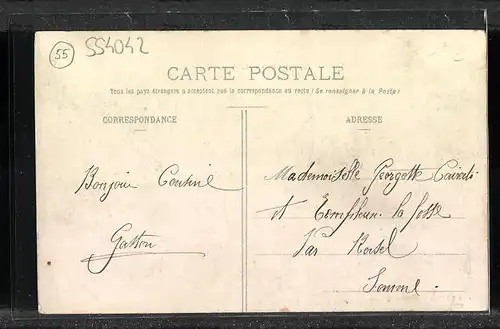 55
554042
CARTE POSTALE
Tous les pays étrangers n'acceptent pas la correspondance au recto (Se renseigner à la Poste)
CORRESPONDANCE
ADRESSE
Bonjour Cousine
Gaston
Mademoiselle Georgette
à Templeux la fosse
Par Roisel
Somme